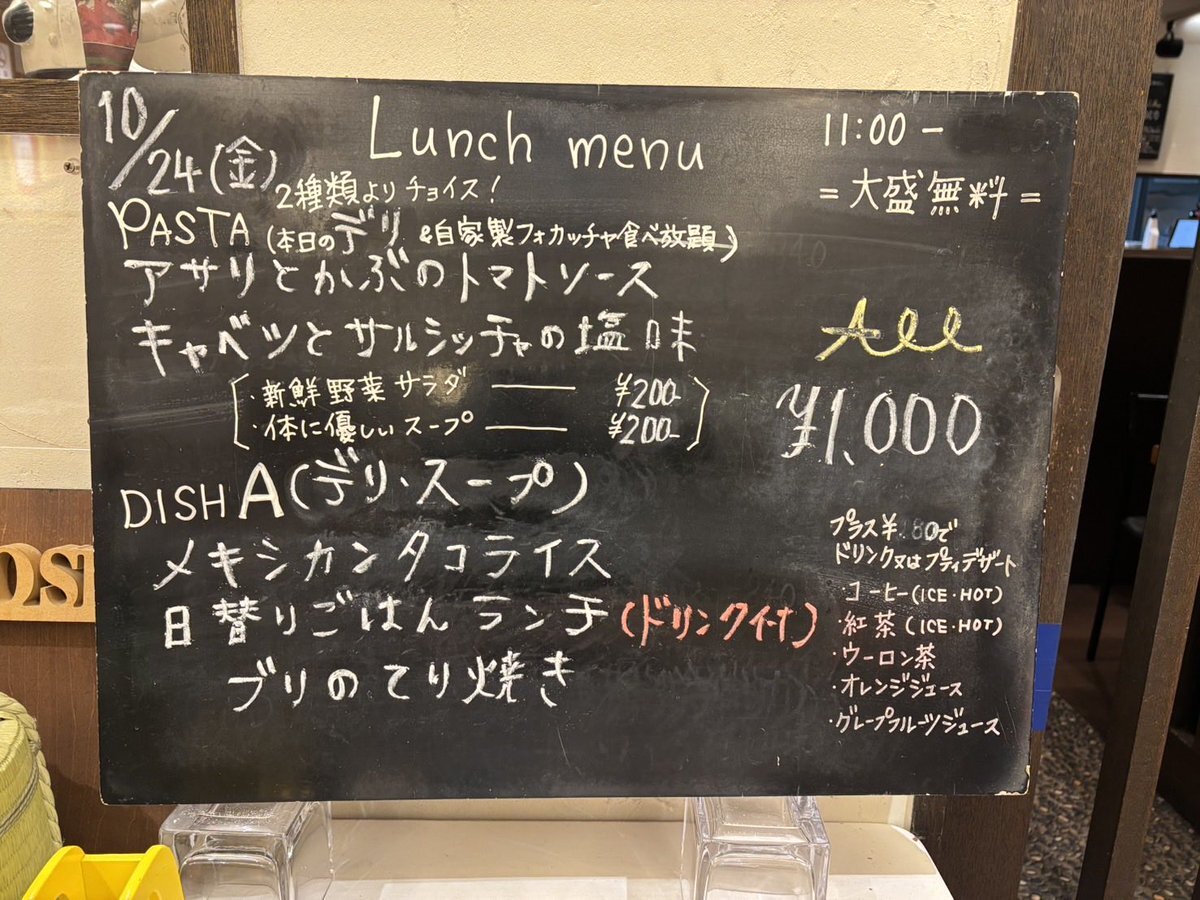 10/24(金)
Lunch menu
11:00-
=大盛無料=
2種類よりチョイス!
PASTA (本日のデリ &自家製フォカッチャ食べ放題)
アサリとかぶのトマトソース
キャベツとサルシッチャの塩味
・新鮮野菜サラダ ―― ¥200-
・体に優しいスープ ―― ¥200-
All
¥1,000
DISH A(デリ・スープ)
メキシカンタコライス
日替りごはんランチ(ドリンク付)
ブリのてり焼き
プラス¥180で
ドリンク又はプティデザート
・コーヒー(ICE・HOT)
・紅茶(ICE・HOT)
・ウーロン茶
・オレンジジュース
・グレープフルーツジュース
OST